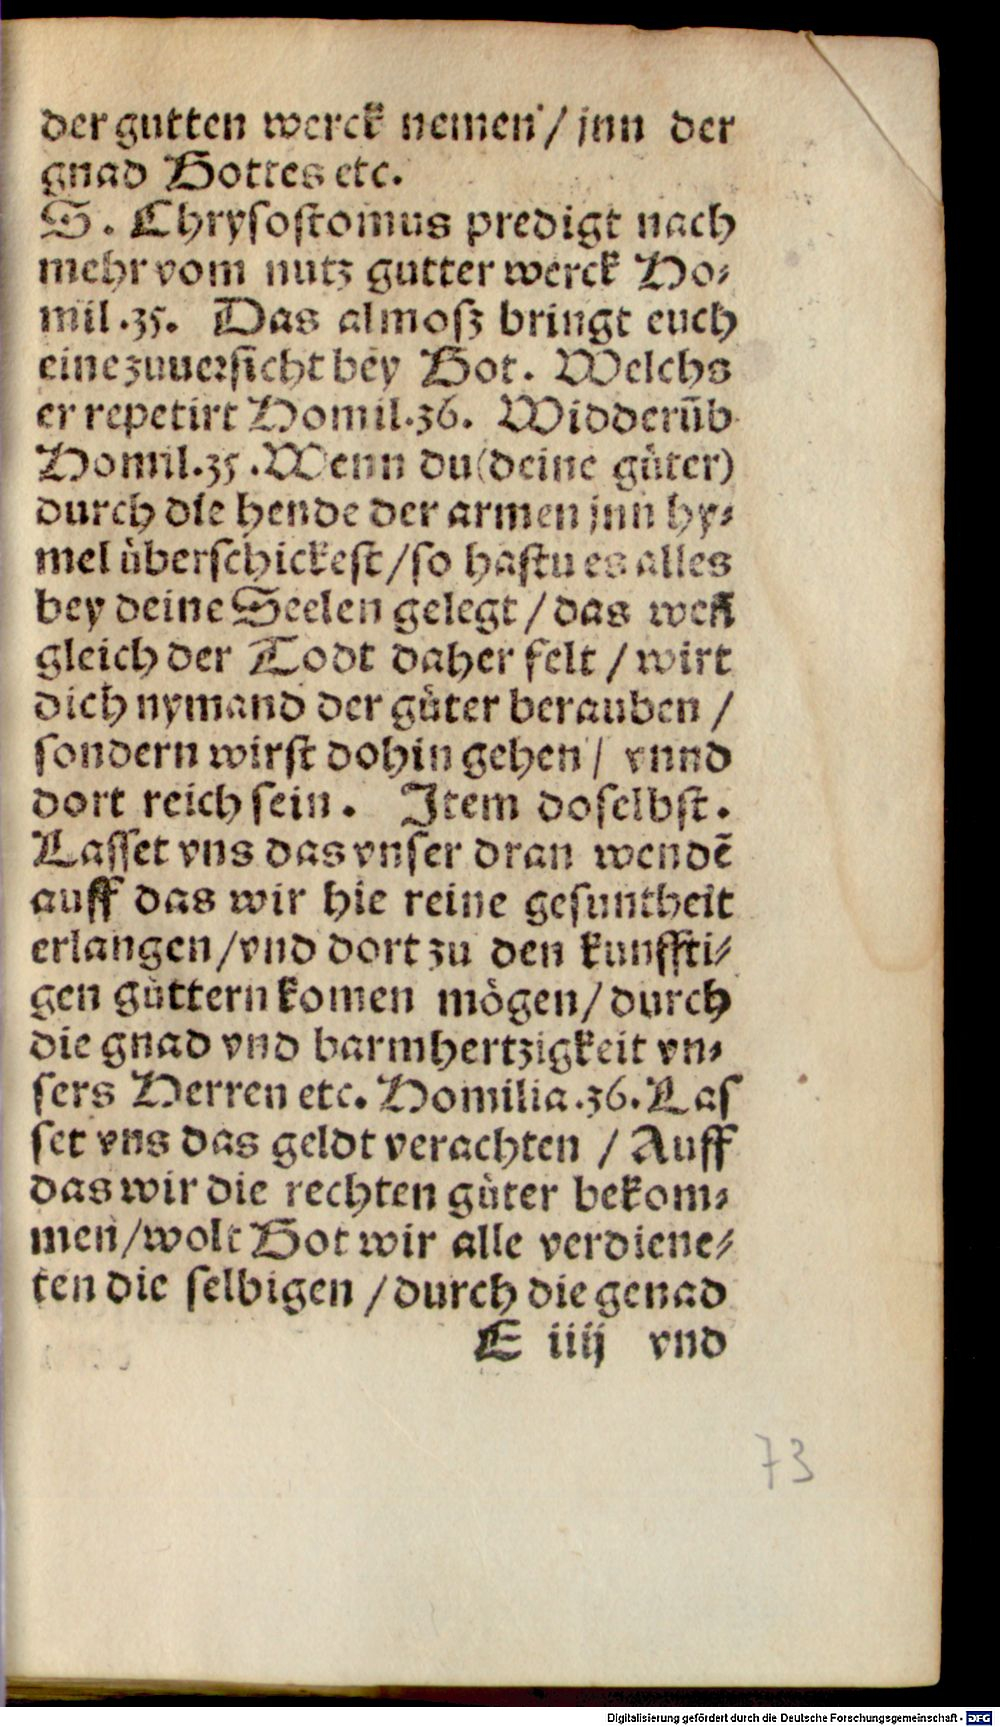 der gutten werck nemen / jnn der
gnad Gottes etc.
S. Chrysostomus predigt nach
mehr vom nutz gutter werck Ho⸗
mil .35. Das almosz bringt euch
eine zuuersicht bey Got. Welchs
er repetirt Homil.36. Widderūb
Homil.35 .Wenn du (deine gůter)
durch die hende der armen jnn hy⸗
mel ůberschickest / so hastu es alles
bey deine Seelen gelegt / das wen̄
gleich der Todt daher felt / wirt
dich nymand der gůter berauben /
sondern wirst dohin gehen / vnnd
dort reich sein. Item doselbst.
Lasset vns das vnser dran wendē
auff das wir hie reine gesuntheit
erlangen / vnd dort zu den kunffti⸗
gen gůttern komen mőgen / durch
die gnad vnd barmhertzigkeit vn⸗
sers Herren etc. Homilia .36. Las
set vns das geldt verachten / Auff
das wir die rechten gůter bekom⸗
men / wolt Got wir alle verdiene⸗
ten die selbigen / durch die genad
E iiij vnd
73
Digitalisierung gefördert durch die Deutsche Forschungsgemeinschaft - DFG